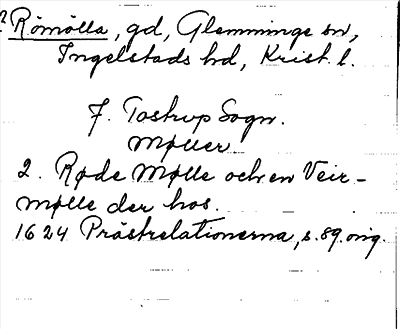 ? Römölla, gd, Glemminge sn,
Ingelstads hd, Krist. l.
7. Tostrup Sogn.
Møller
2. Røde Mølle och en Veir-
mølle der hos.
1624 Prästrelationerna, s. 89. orig.